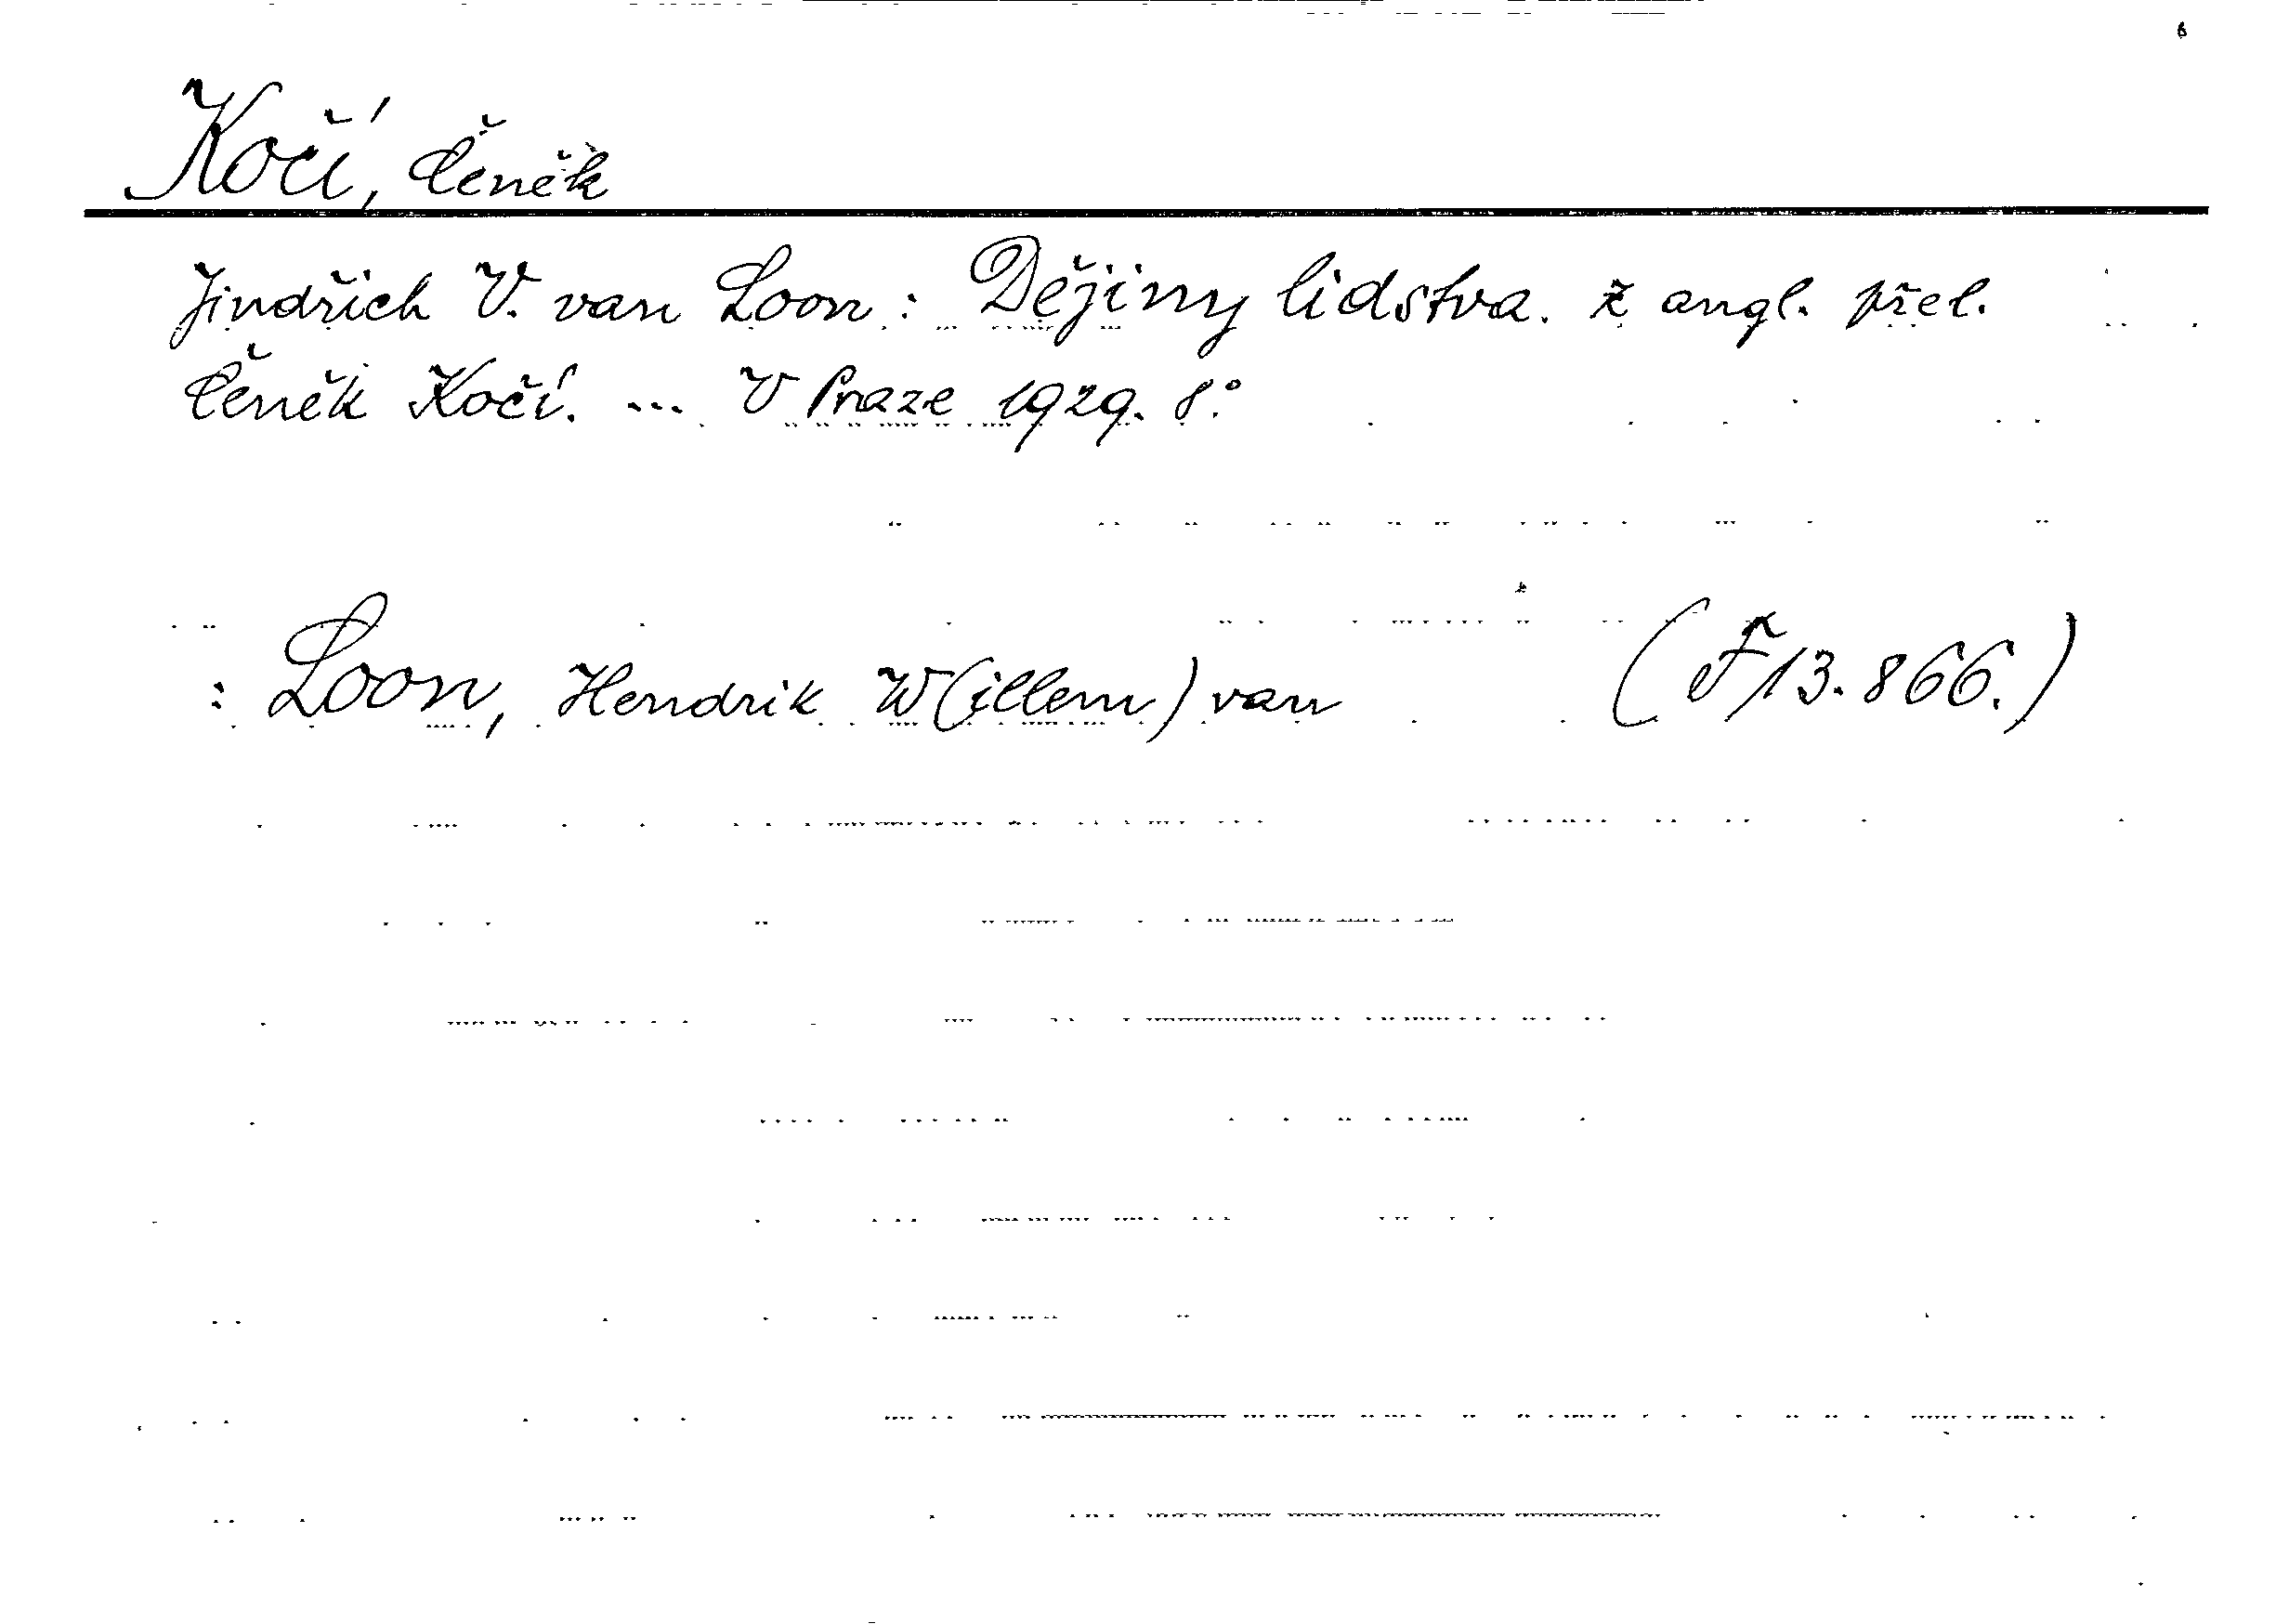 Kočí, Čeněk
Jindřich V. van Loon: Dějiny lidstva. Z angl. přel.
Čeněk Kočí. ... V Praze 1929. 8°.
: Loon, Hendrik W(illem) van (F 13.866.)